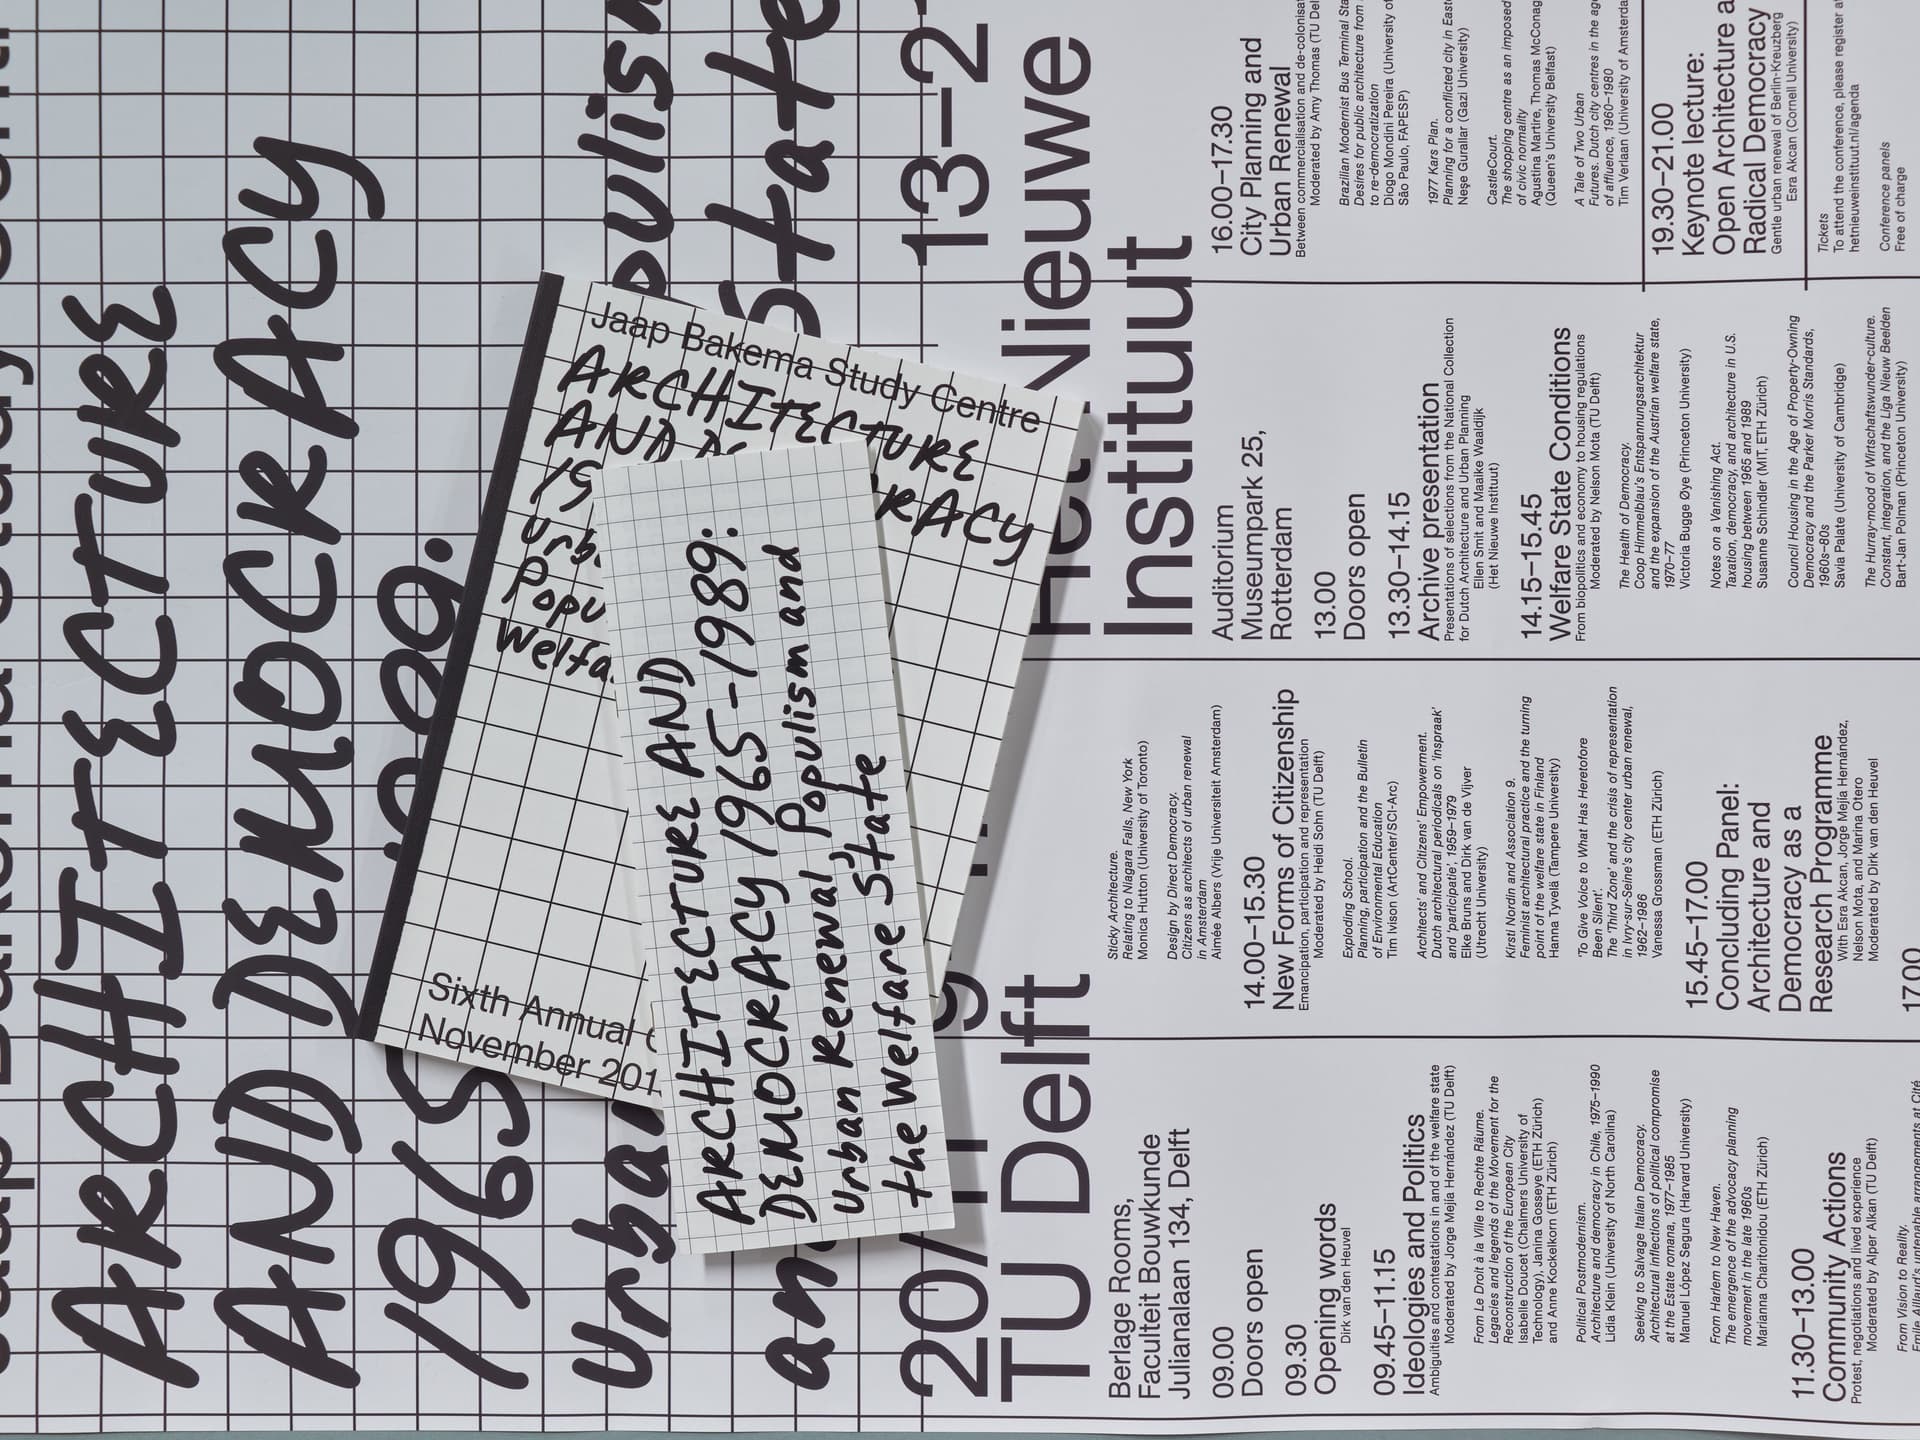 ARCHITECTURE
AND DEMOCRACY
1965
Urba
and
State
13–2
Nieuwe
Instituut
20/
TU Delft
Jaap Bakema Study Centre
ARCHITECTURE
AND
RACY
Popu
Welfa
Sixth Annual
November 201
ARCHITECTURE AND
DEMOCRACY 1965–1989:
Urban Renewal, Populism and
the Welfare State
Berlage Rooms,
Faculteit Bouwkunde
Julianalaan 134, Delft
09.00
Doors open
09.30
Opening words
Dirk van den Heuvel
09.45–11.15
Ideologies and Politics
Ambiguities and contestations in and of the welfare state
Moderated by Jorge Mejía Hernández (TU Delft)
From Le Droit à la Ville to Rechte Räume.
Legacies and legends of the Movement for the
Reconstruction of the European City
Isabelle Doucet (Chalmers University of
Technology), Janina Gosseye (ETH Zürich)
and Anne Kockelkorn (ETH Zürich)
Political Postmodernism.
Architecture and democracy in Chile, 1975–1990
Lidia Klein (University of North Carolina)
Seeking to Salvage Italian Democracy.
Architectural inflections of political compromise
at the Estate romana, 1977–1985
Manuel López Segura (Harvard University)
From Harlem to New Haven.
The emergence of the advocacy planning
movement in the late 1960s
Marianna Charitonidou (ETH Zürich)
11.30–13.00
Community Actions
Protest, negotiations and lived experience
Moderated by Alper Alkan (TU Delft)
From Vision to Reality.
Sticky Architecture.
Relating to Niagara Falls, New York
Monica Hutton (University of Toronto)
Design by Direct Democracy.
Citizens as architects of urban renewal
in Amsterdam
Aimée Albers (Vrije Universiteit Amsterdam)
14.00–15.30
New Forms of Citizenship
Emancipation, participation and representation
Moderated by Heidi Sohn (TU Delft)
Exploding School.
Planning, participation and the Bulletin
of Environmental Education
Tim Ivison (ArtCenter/SCI-Arc)
Architects' and Citizens' Empowerment.
Dutch architectural periodicals on 'inspraak'
and 'participatie', 1959–1979
Elke Bruns and Dirk van de Vijver
(Utrecht University)
Kirsti Nordin and Association 9.
Feminist architectural practice and the turning
point of the welfare state in Finland
Hanna Tyvelä (Tampere University)
'To Give Voice to What Has Heretofore
Been Silent'.
The 'Third Zone' and the crisis of representation
in Ivry-sur-Seine's city center urban renewal,
1962–1986
Vanessa Grossman (ETH Zürich)
15.45–17.00
Concluding Panel:
Architecture and
Democracy as a
Research Programme
With Esra Akcan, Jorge Mejía Hernández,
Nelson Mota, and Marina Otero
Moderated by Dirk van den Heuvel
17.00
Auditorium
Museumpark 25,
Rotterdam
13.00
Doors open
13.30–14.15
Archive presentation
Presentations of selections from the National Collection
for Dutch Architecture and Urban Planning
Ellen Smit and Maaike Waaldijk
(Het Nieuwe Instituut)
14.15–15.45
Welfare State Conditions
From biopolitics and economy to housing regulations
Moderated by Nelson Mota (TU Delft)
The Health of Democracy.
Coop Himmelblau's Entspannungsarchitektur
and the expansion of the Austrian welfare state,
1970–77
Victoria Bugge Øye (Princeton University)
Notes on a Vanishing Act.
Taxation, democracy, and architecture in U.S.
housing between 1965 and 1989
Susanne Schindler (MIT, ETH Zürich)
Council Housing in the Age of Property-Owning
Democracy and the Parker Morris Standards,
1960s–80s
Savia Palate (University of Cambridge)
The Hurray-mood of Wirtschaftswunder-culture.
Constant, integration, and the Liga Nieuw Beelden
Bart-Jan Polman (Princeton University)
16.00–17.30
City Planning and
Urban Renewal
Between commercialisation and de-colonisat
Moderated by Amy Thomas (TU Del
Brazilian Modernist Bus Terminal Sta
Desires for public architecture from
to re-democratization
Diogo Mondini Pereira (University of
São Paulo, FAPESP)
1977 Kars Plan.
Planning for a conflicted city in Easte
Neşe Gurallar (Gazi University)
CastleCourt.
The shopping centre as an imposed
of civic normality
Agustina Martire, Thomas McConag
(Queen's University Belfast)
A Tale of Two Urban
Futures. Dutch city centres in the age
of affluence, 1960–1980
Tim Verlaan (University of Amsterda
19.30–21.00
Keynote lecture:
Open Architecture a
Radical Democracy
Gentle urban renewal of Berlin-Kreuzberg
Esra Akcan (Cornell University)
Tickets
To attend the conference, please register at
hetnieuweinstituut.nl/agenda
Conference panels
Free of charge